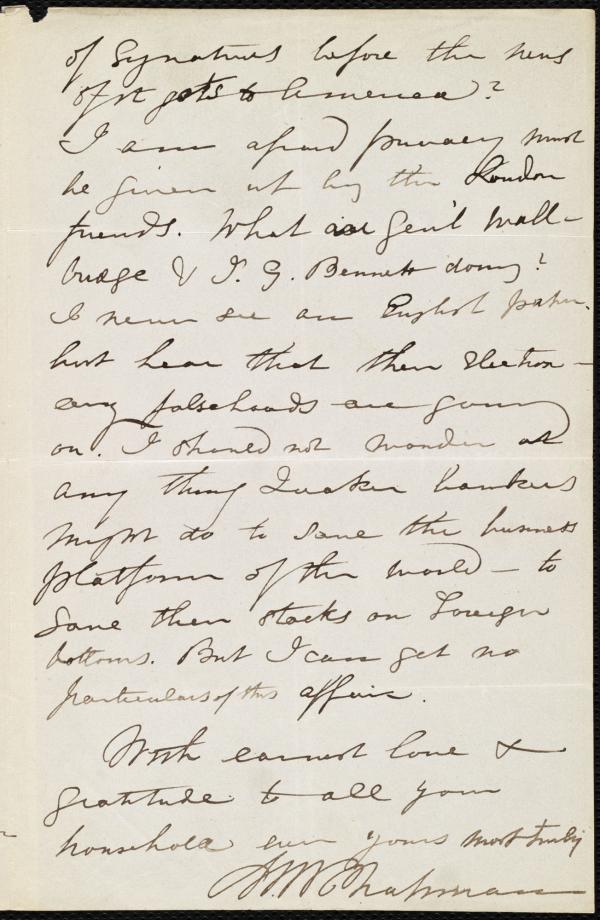 of Signatures before the news
of it gets to America?
I am afraid privacy must
be given up by the London
friends. What are Gen'l Wall-
bridge & J. G. Bennett doing?
I never see an English paper,
but hear that their election-
eering falsehoods are going
on. I should not wonder at
any thing Quaker bankers
might do to save the business
platform of the world — to
save their stocks on Foreign
bottoms. But I can get no
particulars of this affair.
With earnest love &
gratitude to all your
household ever yours most truly
M. W. Chapman